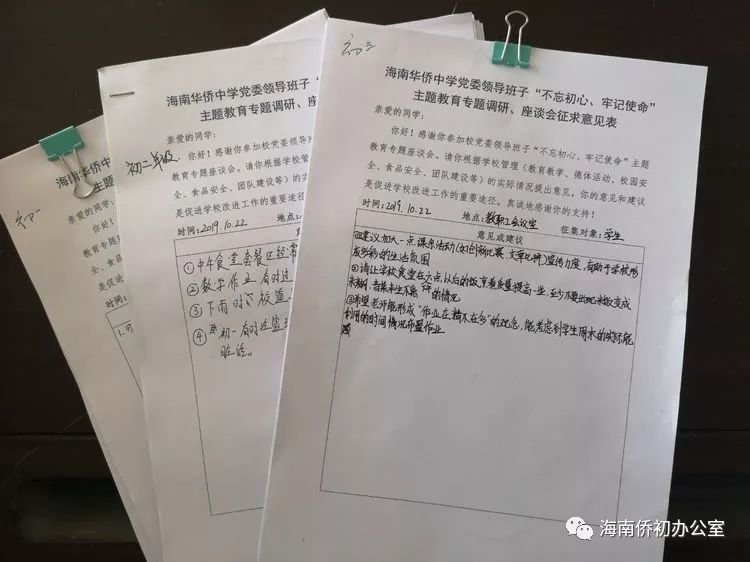 初三
海南华侨中学党委领导班子“不忘初心、牢记使命”
主题教育专题调研、座谈会征求意见表
亲爱的同学：
你好！感谢你参加校党委领导班子“不忘初心、牢记使命”主题
教育专题座谈会。请你根据学校管理（教育教学、德体活动、校园安
全、食品安全、团队建设等）的实际情况提出意见，你的意见和建议
是促进学校改进工作的重要途径。真诚地感谢你的支持！
时间：2019.10.22 地点：教职工会议室 征集对象：学生
意见或建议
①建议加大一点课余活动(如 比赛、文章 )宣传力度，有助于学校形
成 的生活氛围
②请让学校食堂在六点以后的饭菜质量提高一些，至少不要出现米饭变成
的情况
③希望老师能形成“作业在精不在多”的观念，能考虑到学生周末的实际能
利用的时间情况布置作业
初二年级
海南华侨中学党委领导班子“
主题教育专题调研、座
亲爱的同学：
你好！感谢你参加校党委领导班
教育专题座谈会。请你根据学校管理
全、食品安全、团队建设等）的实际
是促进学校改进工作的重要途径。
时间：2019.10.22 地点：
①中午食堂套餐区经常
②数学作业有时过
③下雨时 校道
④ 初一有时
脏话。
初一
海南
主
亲爱的同学：
你好！
教育专题
全、食品
是促进学
时间：
1.可
海南侨初办公室